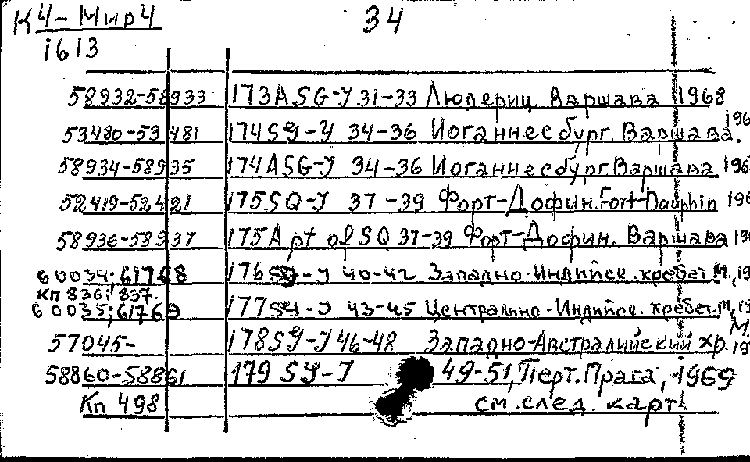 К4-Мир4 34
1613
58932-58933 173ASG-J 31-33 Людериц. Варшава 1968
53480-53481 174SG-J 34-36 Иоганнесбург. Варшава. 196
58934-58935 174ASG-J 34-36 Иоганнесбург Варшава 196
52419-52421 175SQ-J 37-39 Форт-Дофин. Fort-Dauphin 196
58936-58937 175A pt of SQ 37-39 Форт-Дофин. Варшава 19
60034;61768 176SG-J 40-42 Западно-Индийск. хребет М., 19
Кп 836; 837
60035;61769 177SG-J 43-45 Центрально-Индийск. хребет. М., 19
57045- 178SG-J 46-48 Западно-Австралийский хр. М 19
58860-58861 179 SG-J 49-51, Перт. Прага, 1969
Кп 498 см. след. карт